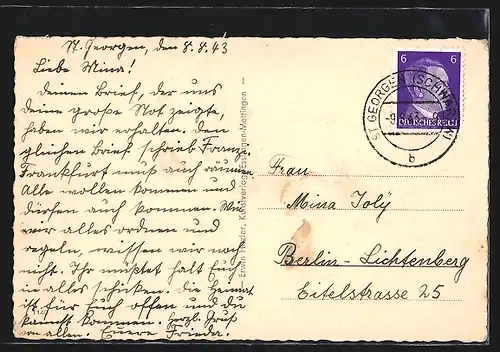 St. Georgen, den 8.8.43
Liebe Mina!
Deinen Brief, der uns
deine große Not zeigte,
haben wir erhalten. Den
gleichen Brief schrieb Franz.
Frankfurt muß auch räumen.
Alle wollen kommen und
dürfen auch kommen. Wie
wir alles ordnen und
regeln, wissen wir noch
nicht. Ihr müßtet halt Euch
in alles schicken. Die Heimat
ist für Euch offen und du
kannst kommen. Herzl. Gruß
von allen. Euere Frieda.
Erwin Kunstverlag, Esslingen-Mettingen
6 6
DEUTSCHES REICH
ST GEORGEN (SCHWARZW)
b
Frau
Mina Joly
Berlin-Lichtenberg
Eitelstrasse 25